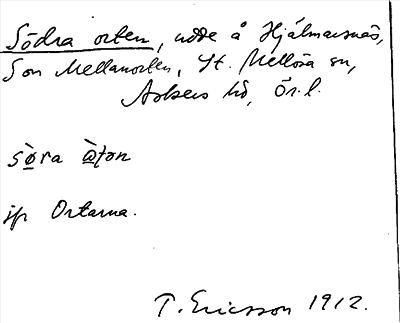 Södra orten, udde å Hjälmarsnäs,
Son Mellanorten, St. Mellösa sn,
Askers hd, Ör. l.
sø̀ra òṭən
jfr Ortarna.
T. Ericsson 1912.